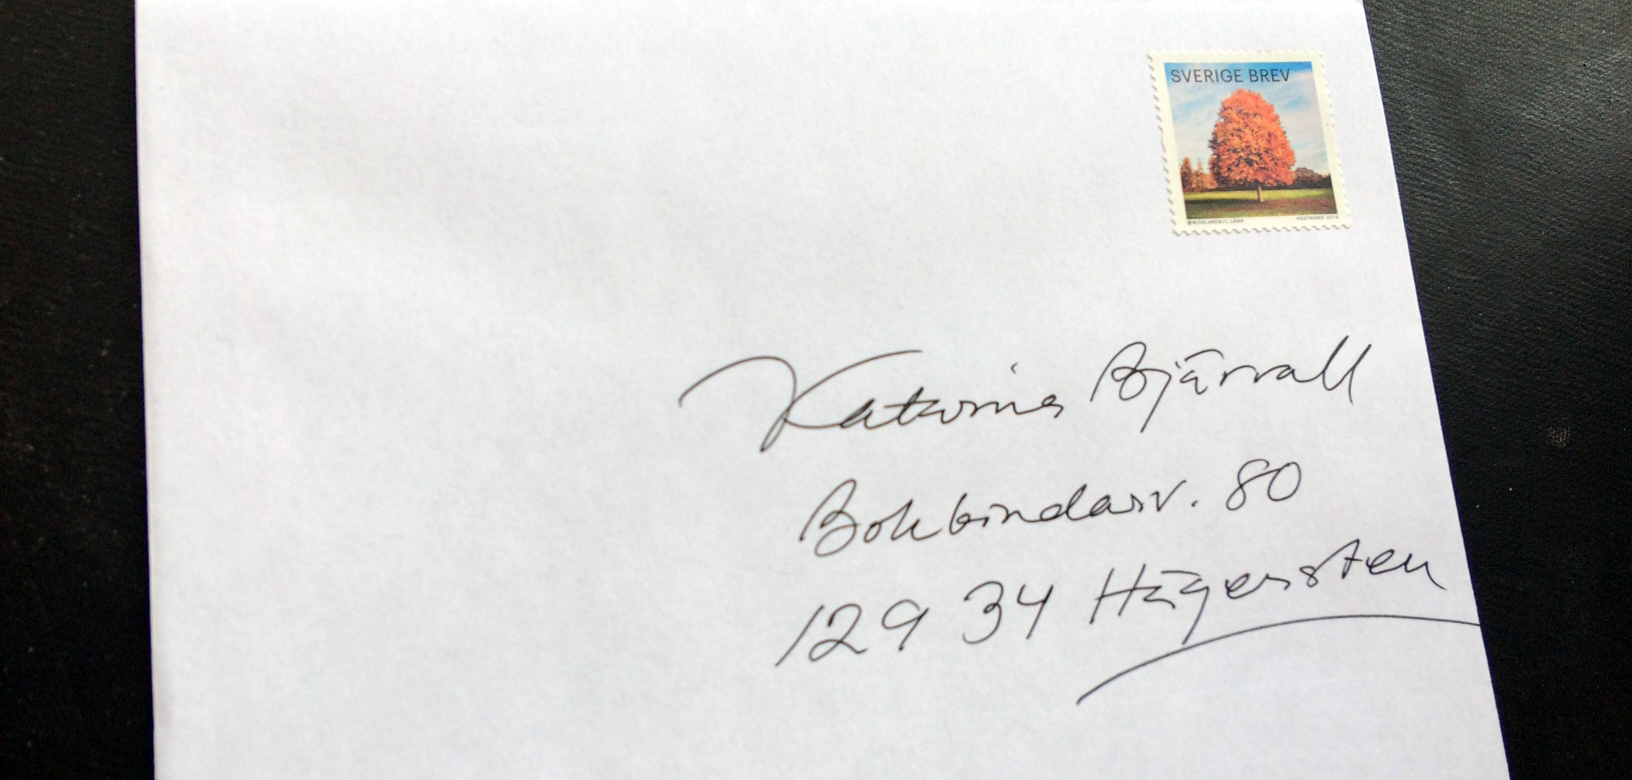 SVERIGE BREV
POSTNORD 2015
Katarina Bjärvall
Bokbindarv. 80
129 34 Hägersten